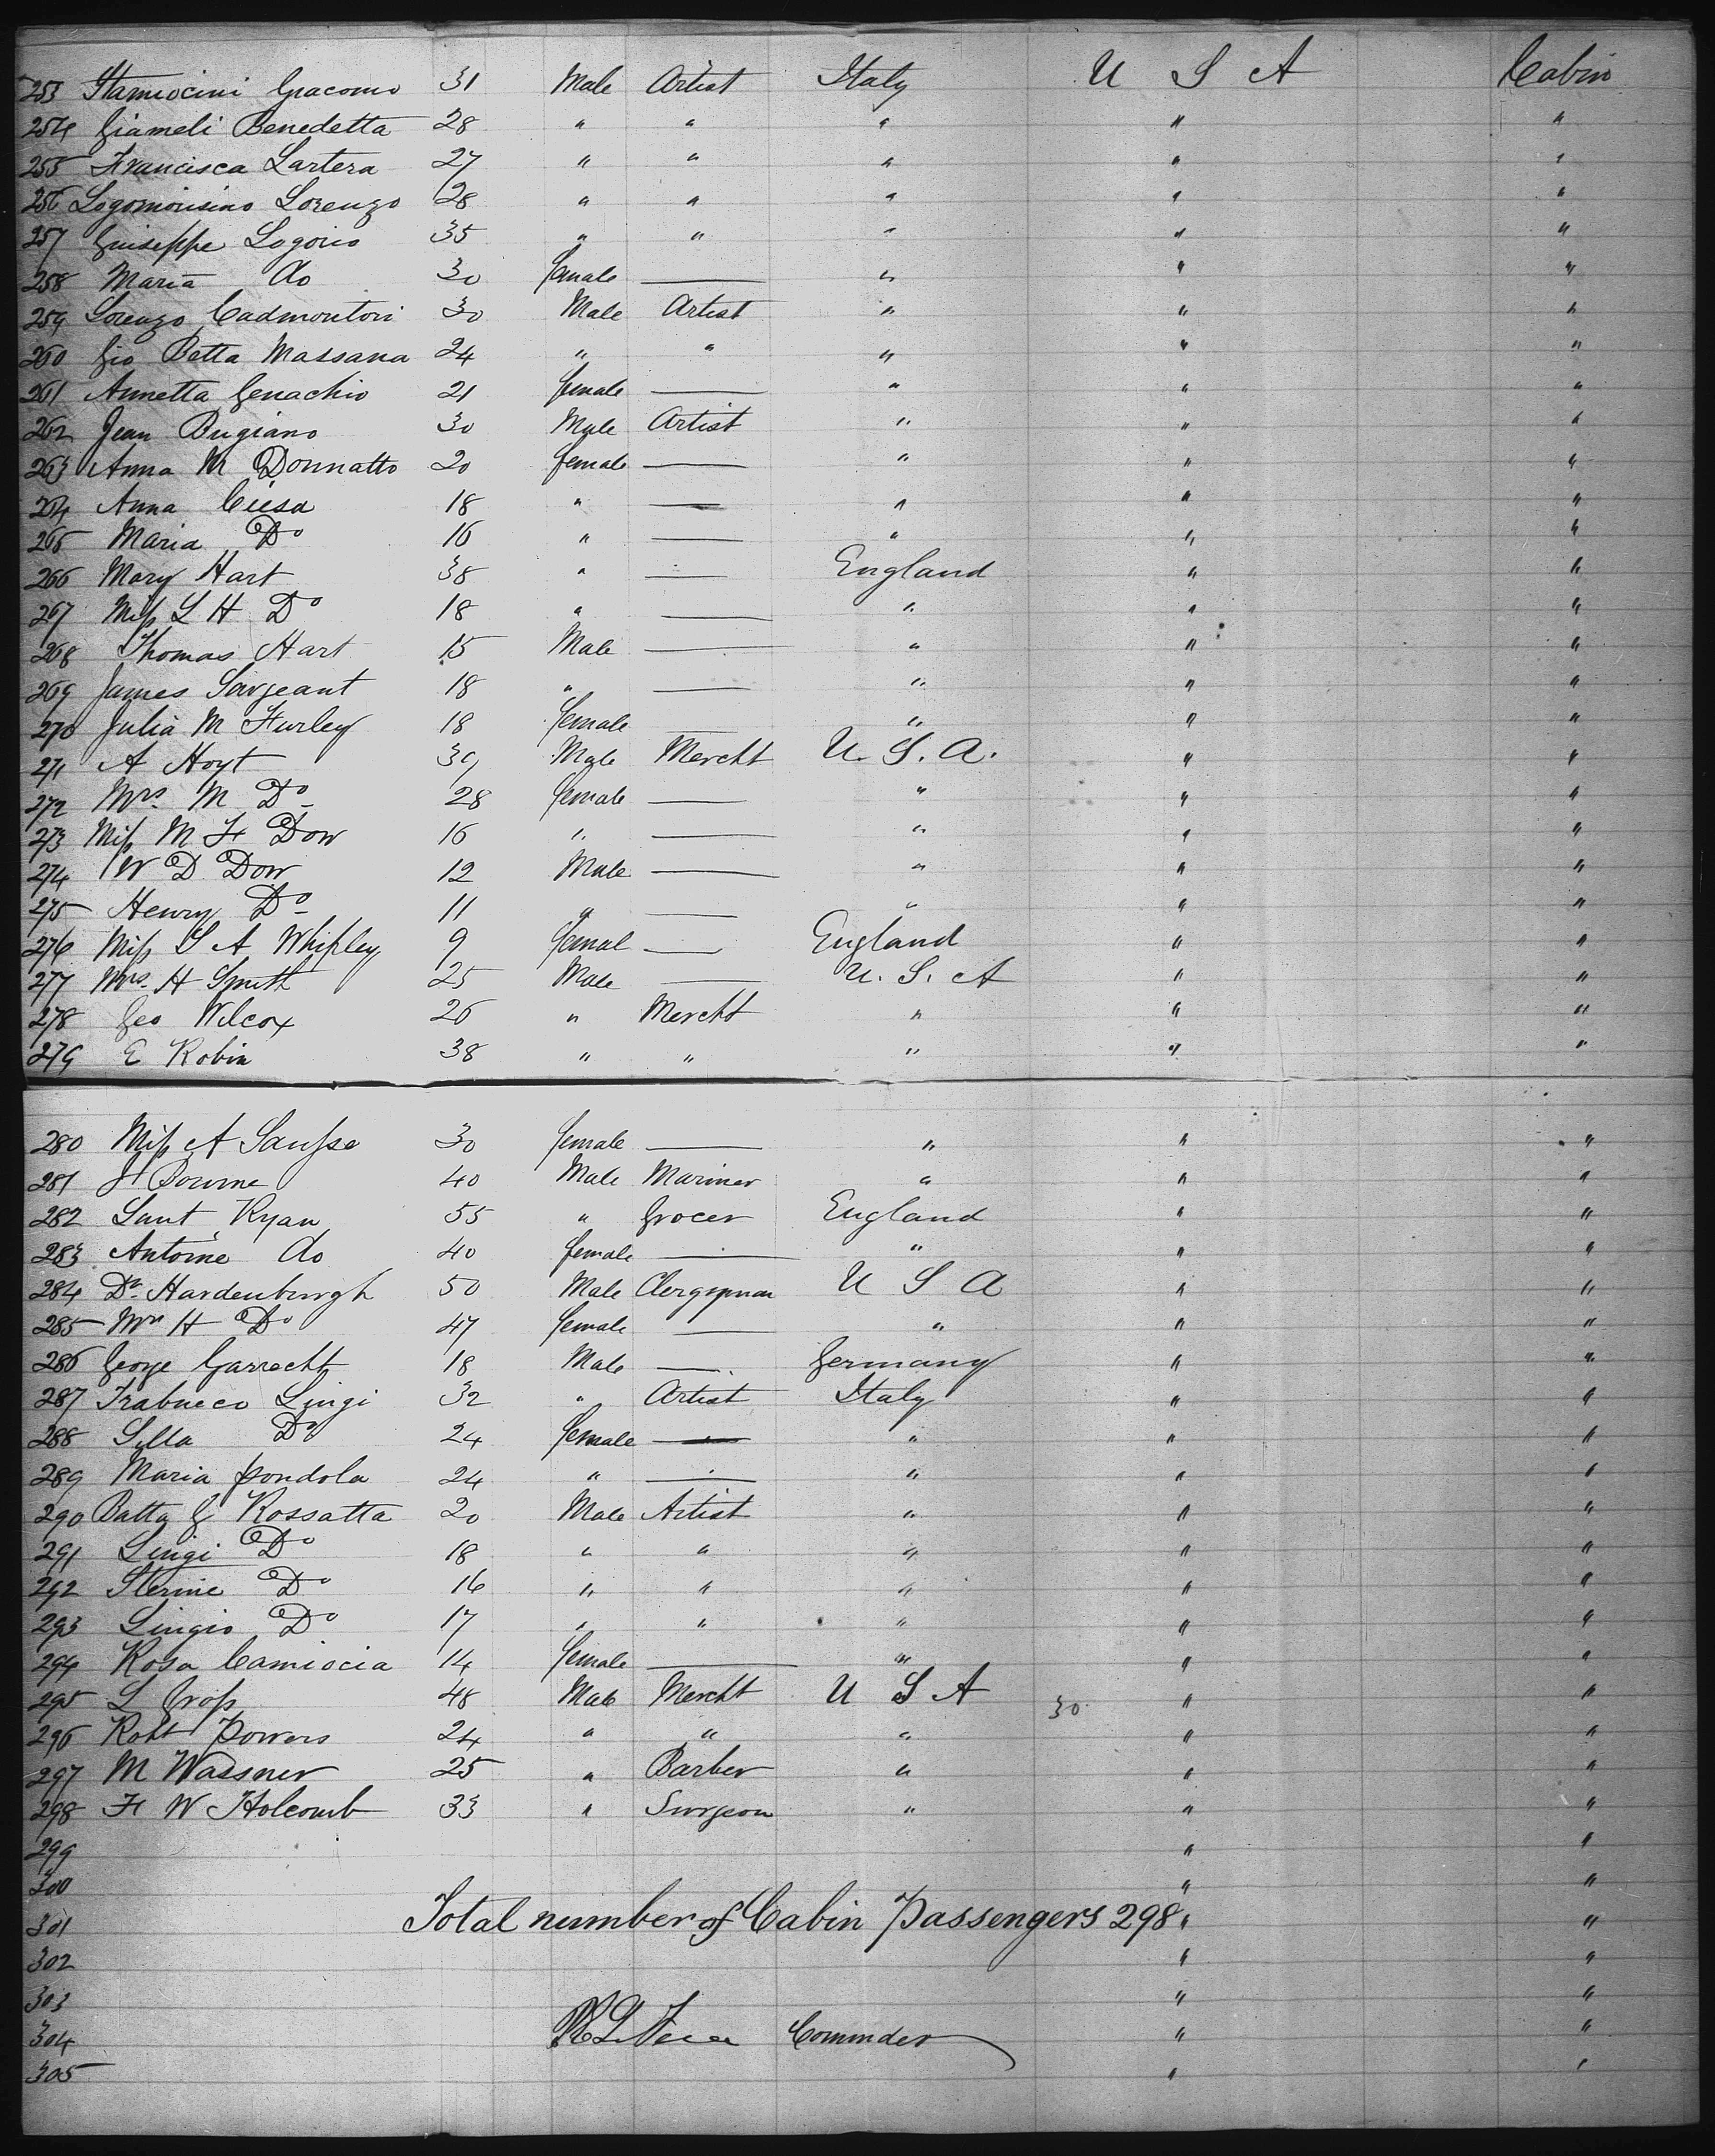 253 Stamiocini Giacomo 31 Male Artist Italy U S A Cabin
254 Giameli Benedetta 28 " " " " "
255 Francisca Lartera 27 " " " " "
256 Logomorisino Lorenzo 28 " " " " "
257 Guiseppe Logorio 35 " " " " "
258 Maria do 30 female — " " "
259 Lorenzo Cadmontori 30 Male Artist " " "
260 Gio Batta Massana 24 " " " " "
261 Annetta Genachio 21 female — " " "
262 Jean Bugiano 30 Male Artist " " "
263 Anna M Donnatto 20 female — " " "
264 Anna Ciesa 18 " — " " "
265 Maria Do 16 " — " " "
266 Mary Hart 38 " — England " "
267 Miss L H Do 18 " — " " "
268 Thomas Hart 15 Male — " " "
269 James Sargeant 18 " — " " "
270 Julia M Hurley 18 female — " " "
271 A Hoyt 39 Male Mercht U. S. A. " "
272 Mrs. M Do 28 female — " " "
273 Miss M F Dow 16 " — " " "
274 W D Dow 12 Male — " " "
275 Henry Do 11 " — " " "
276 Miss S A Whipley 9 femal — England " "
277 Mrs. H Smith 25 Male — U. S. A " "
278 Geo Wilcox 26 " Mercht " " "
279 E Robin 38 " " " " "
280 Miss A Sausse 30 female — " " "
281 J Bourne 40 Male Mariner " " "
282 Sant Ryan 55 " Grocer England " "
283 Antoine do 40 female — " " "
284 Dr. Hardenburgh 50 Male Clergyman U S A " "
285 Mrs H Do 47 female — " " "
286 George Garrecht 18 Male — Germany " "
287 Trabucco Lingi 32 " Artist Italy " "
288 Silla Do 24 female — " " "
289 Maria pondola 24 " — " " "
290 Batta G Rossatta 20 Male Artist " " "
291 Lingi Do 18 " " " " "
292 Sterine Do 16 " " " " "
293 Lingio Do 17 " " " " "
294 Rosa Camiocia 14 female — " " "
295 L Cross 48 Male Mercht U S A 30 " "
296 Robt Powers 24 " " " " "
297 M Wassner 25 " Barber " " "
298 F W Holcomb 33 " Surgeon " " "
299 " "
300 " "
301 Total number of Cabin Passengers 298 " "
302 " "
303 " "
304 Commder " "
305 " "